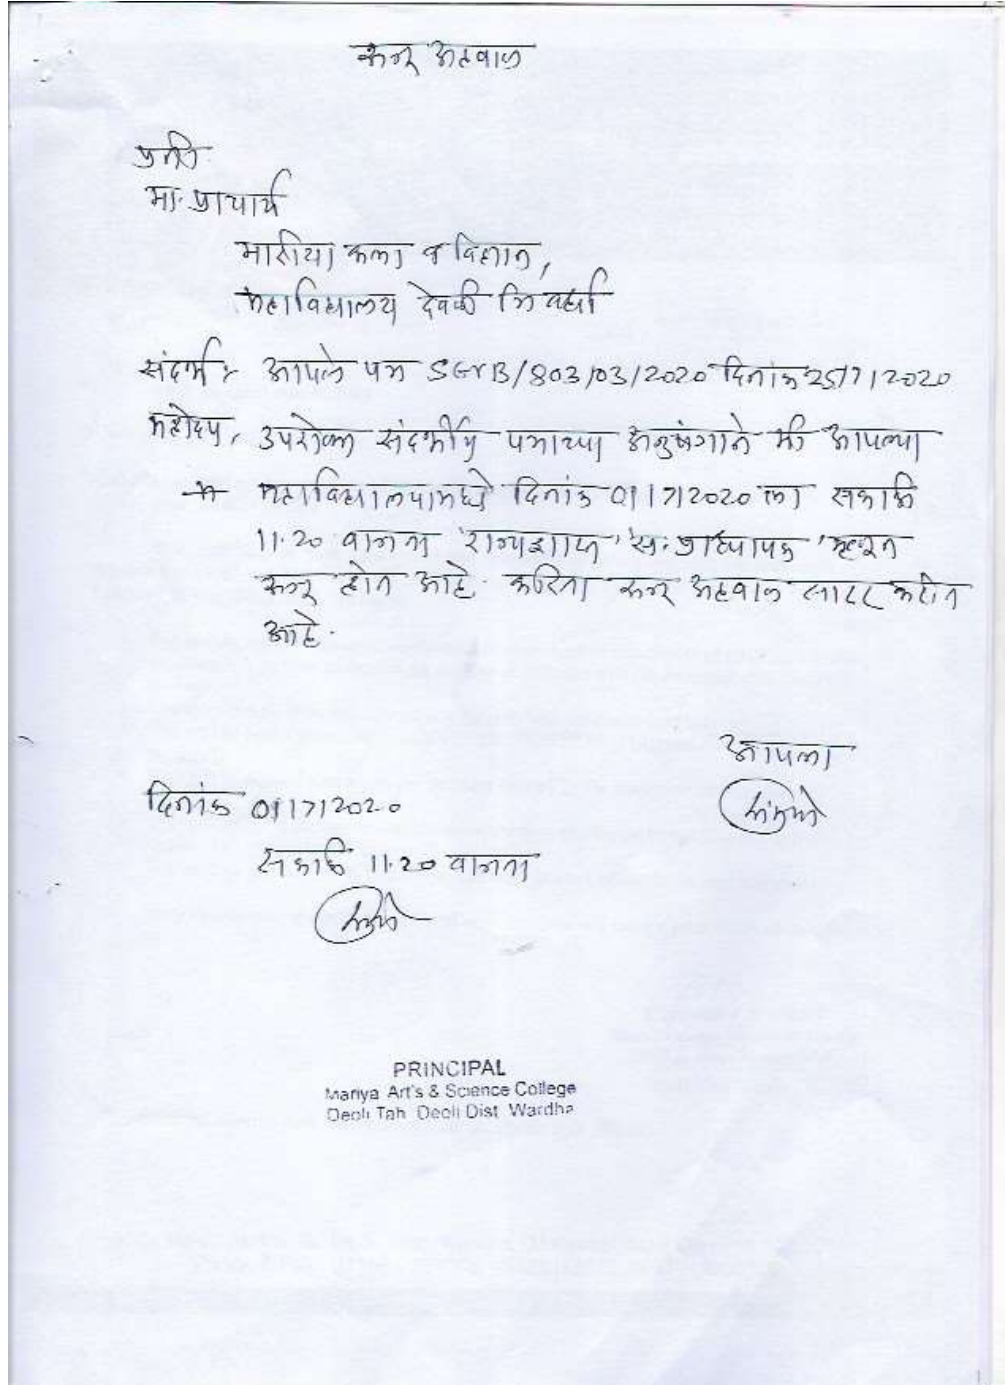 रूजू अहवाल
प्रति
मा. प्राचार्य
मारीया कला व विज्ञान,
महाविद्यालय देवळी जि वर्धा
संदर्भ :- आपले पत्र SGVB/803/03/2020 दिनांक 25/7/2020
महोदय, उपरोक्त संदर्भीय पत्राच्या अनुषंगाने मी आपल्या
महाविद्यालयामध्ये दिनांक 01/7/2020 ला सकाळी
11.20 वाजता 'राज्यशास्त्र' स. प्राध्यापक म्हणून
रूजू होत आहे. करिता रूजू अहवाल सादर करीत
आहे.
आपला
दिनांक 01/7/2020
सकाळी 11.20 वाजता
PRINCIPAL
Mariya Art's & Science College
Deoli Tah Deoli Dist Wardha